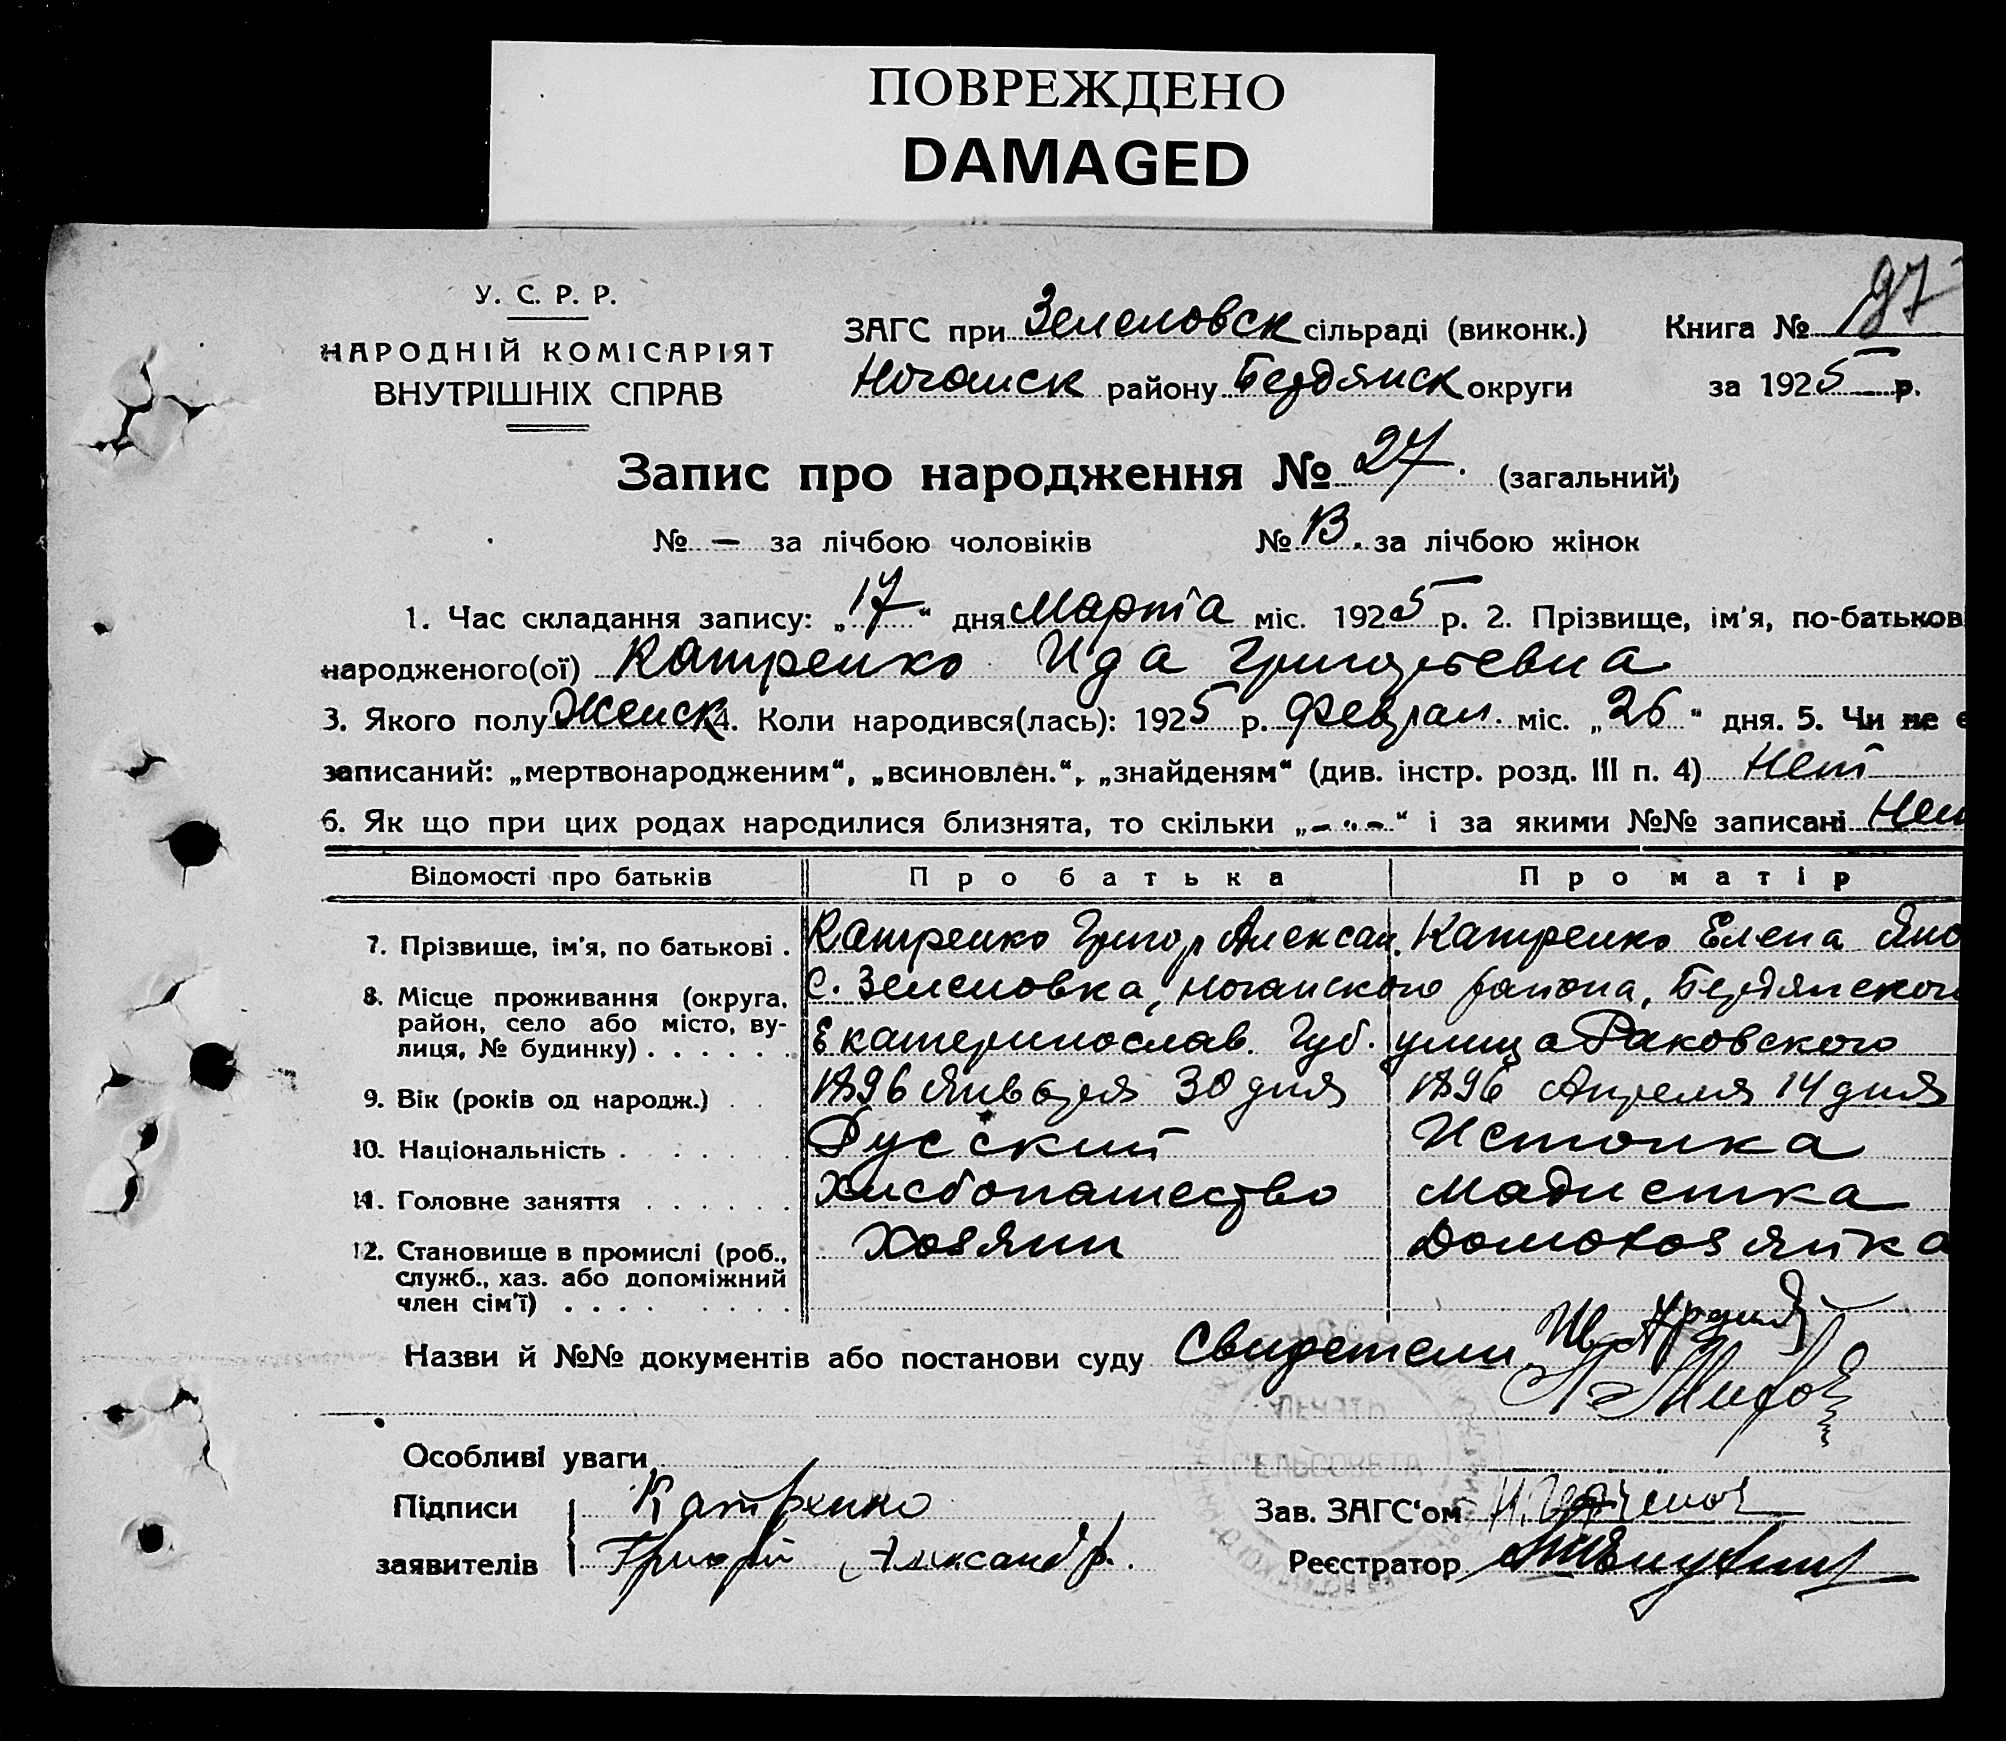 ПОВРЕЖДЕНО
DAMAGED
У. С. Р. Р.
НАРОДНІЙ КОМІСАРІЯТ
ВНУТРІШНІХ СПРАВ
ЗАГС при Зеленовск сільраді (виконк.) Книга № 97
Ногайск району Бердянск округи за 1925 р.
Запис про народження № 27. (загальний)
№ — за лічбою чоловіків № 13. за лічбою жінок
1. Час складання запису: „17“ дня Марта міс. 1925 р. 2. Прізвище, ім'я, по-батькові
народженого(ої) Катренко Ида Григорьевна
3. Якого полу Женск 4. Коли народився(лась): 1925 р. Феврал. міс. „26“ дня. 5. Чи не є
записаний: „мертвонародженим“, „всиновлен.“, „знайденям“ (див. інстр. розд. III п. 4) Нет
6. Як що при цих родах народилися близнята, то скільки „—"—“ і за якими №№ записані Нет
Відомості про батьків Про батька Про матір
7. Прізвище, ім'я, по батькові . Катренко Григор Алексан. Катренко Елена Яко
8. Місце проживання (округа, С. Зеленовка, Ногайского района, Бердянского
район, село або місто, ву-
лиця, № будинку) . . . . . . Екатеринослав. Губ. улица Раковского
9. Вік (років од народж.) . . 1896 Января 30 дня 1896 Апреля 14 дня
10. Національність . . . . . Русский Эстонка
11. Головне заняття . . . . . . Хлебопашество
12. Становище в промислі (роб., Хозяин Домохозяйка
служб., хаз. або допоміжний
член сім'ї) . . . . . . . .
Назви й №№ документів або постанови суду Свидетели
ПЕЧАТЬ
СЕЛЬСОВЕТА
Особливі уваги
Підписи Катренко Зав. ЗАГС'ом
заявителів Григорий Александр. Реєстратор